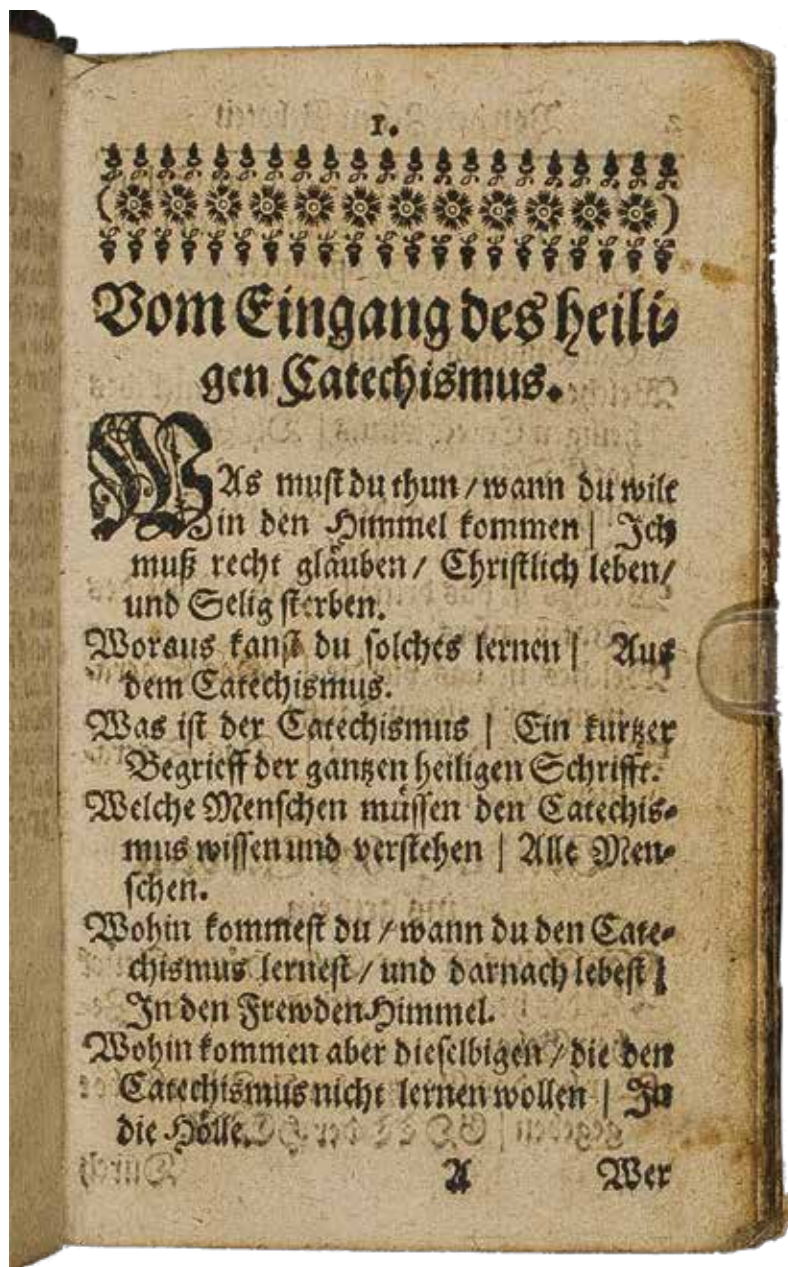 1.
Vom Eingang des heili-
gen Catechismus.
WAs must du thun / wann du wilt
in den Himmel kommen | Ich
muß recht gläuben / Christlich leben /
und Selig sterben.
Woraus kanst du solches lernen | Aus
dem Catechismus.
Was ist der Catechismus | Ein kurtzer
Begrieff der gantzen heiligen Schrifft.
Welche Menschen müssen den Catechis-
mus wissen und verstehen | Alle Men-
schen.
Wohin kommest du / wann du den Cate-
chismus lernest / und darnach lebest |
In den Frewden-Himmel.
Wohin kommen aber dieselbigen / die den
Catechismus nicht lernen wollen | In
die Hölle.
A Wer